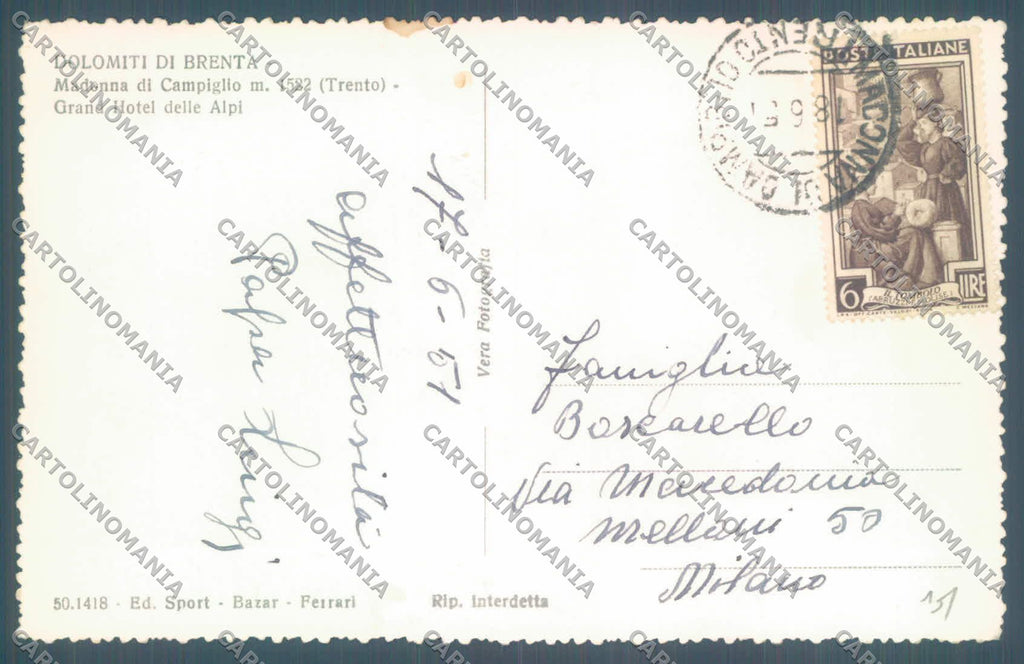 DOLOMITI DI BRENTA
Madonna di Campiglio m. 1522 (Trento) -
Grand Hotel delle Alpi
17-6-51
affettuosità
Vera Fotografia
POSTE ITALIANE
IL TOMBOLO
6 LIRE
18 6 51
Famiglia
Boscarello
Via Macedonio
Melloni 50
Milano
151
50.1418 - Ed. Sport - Bazar - Ferrari
Rip. Interdetta
CARTOLINOMANIA